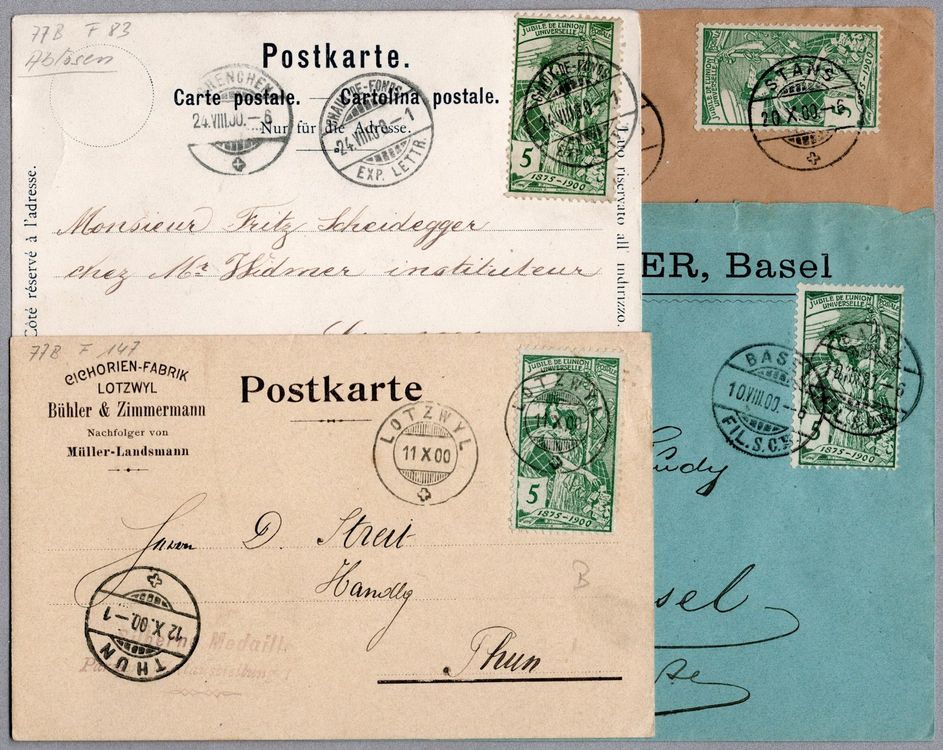 77B F 83
Ablösen
Postkarte.
Carte postale. Cartolina postale.
Nur für die Adresse.
24.VIII.00.-6
CHAUX-DE-FONDS
24.VIII.00-1
EXP. LETTR.
JUBILÉ DE L'UNION
UNIVERSELLE POSTALE
5
1875-1900
Côté réservé à l'adresse.
Lato riservato all indirizzo.
Monsieur Fritz Scheidegger
chez Mr Widmer instituteur
JUBILÉ DE L'UNION
UNIVERSELLE POSTALE
5
1875-1900
STANS
20.X.00.-6
ER, Basel
JUBILÉ DE L'UNION
UNIVERSELLE POSTALE
5
1875-1900
BASEL
10.VIII.00.-8
FIL.S.C.B.
sel
77B F 147
CICHORIEN-FABRIK
LOTZWYL
Bühler & Zimmermann
Nachfolger von
Müller-Landsmann
Postkarte
LOTZWYL
11 X 00
LOTZWYL
11 X 00
JUBILÉ DE L'UNION
UNIVERSELLE POSTALE
5
1875-1900
Herrn D. Streit
Handlg
B
Thun
THUN
12.X.00.-1
Medaill.